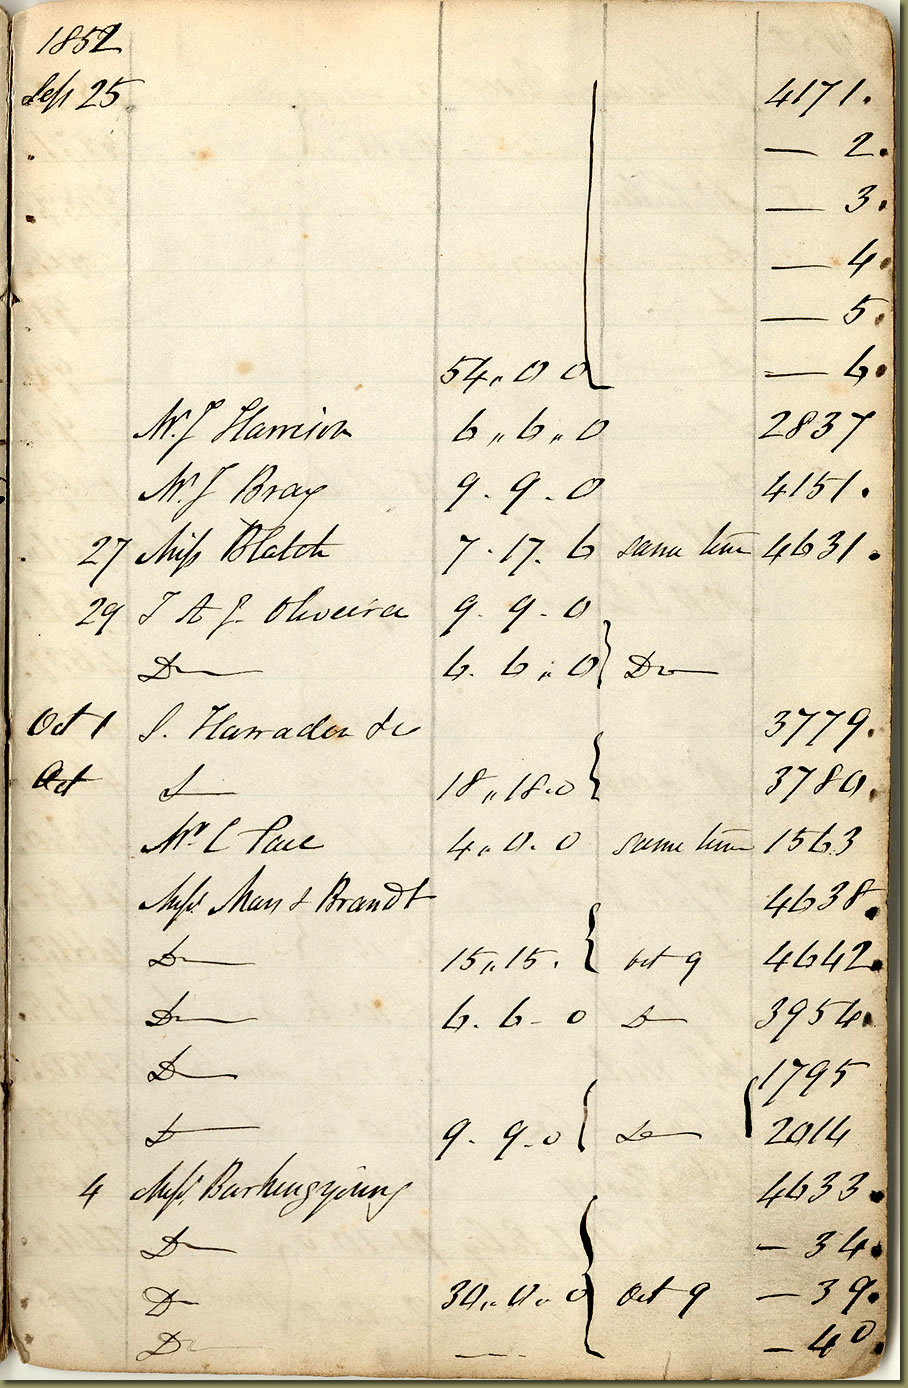 1852
Sep 25 4171.
— 2.
— 3.
— 4.
— 5.
54,, 0 0 — 6.
Mr J Harrison 6,, 6,, 0 2837
Mr J Bray 9. 9. 0 4151.
27 Miss Blatch 7. 17. 6 same time 4631.
29 J A J. Oliveira 9. 9. 0
Do 6. 6,, 0 Do
Oct 1 S. Harraden & Co 3779.
Oct Do 18,, 18. 0 3780.
Mr C Pace 4,, 0. 0 same time 1563
Messrs. Mans & Brandt 4638.
Do 15,, 15. Oct 9 4642.
Do 6. 6 - 0 Do 3954.
Do 1795
Do 9. 9. 0 Do 2014
4 Messrs. 4633.
Do — 34.
Do 30,, 0,, 0 Oct 9 — 39.
Do — — 40.